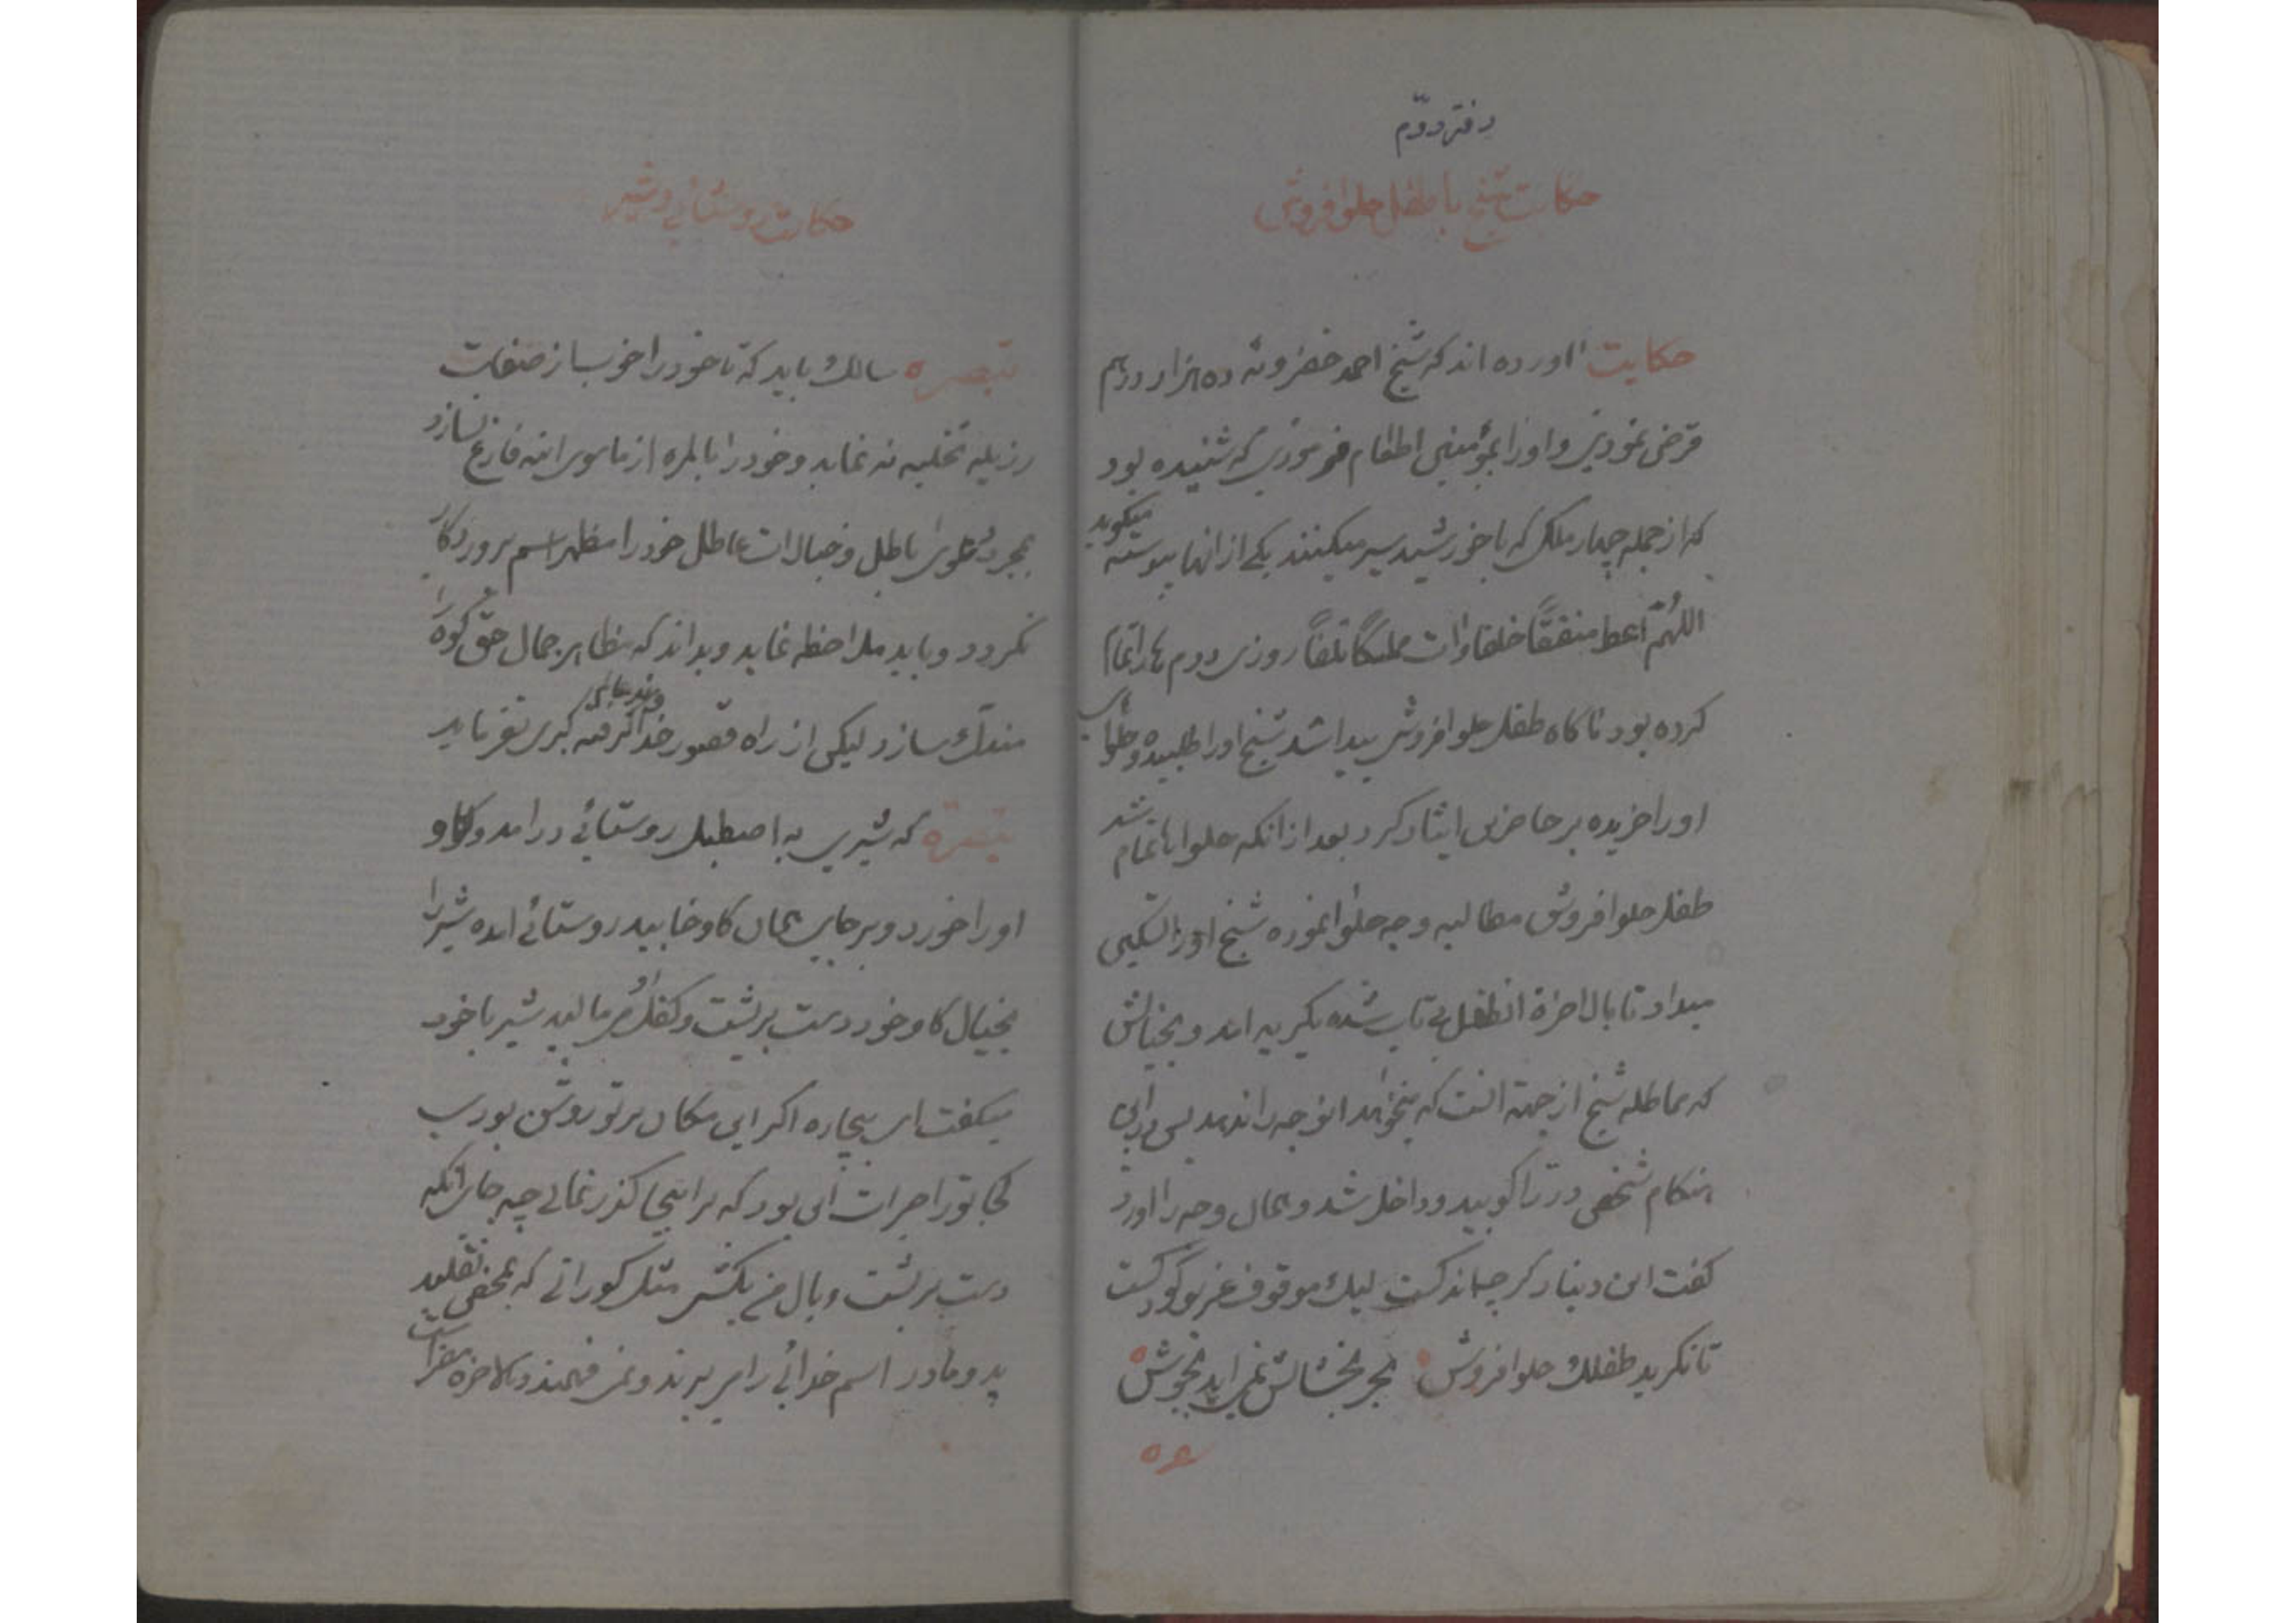 دفتر دوّم
حکایت شیخ با طفل حلوا فروش
حکایت اورده اند که شیخ احمد خضرویه ده هزار درهم
قرض نمودی و اورا بمؤمنین اطعام فرمودی که شنیده بود
که از جمله چهار ملک که با خورشید سیر میکنند یکی از انها پیوسته میکوید
اللهُمّ اعط منفقًا خلفا وات ممسکًا تلفاً روزی دوم
کرده بود ناکاه طفل حلوا فروش پیدا شد شیخ اورا طلبیده و حلوای
اورا خریده بر حاضرین ایثار کرد بعد از انکه حلواها تمام شد
طفل حلوا فروش مطالبه وجه حلوا نموده شیخ اورا تسکین
میداد تا بالاخرة انطفل بی تاب شده بکریه امد و بخیالش
که مماطله شیخ از جهة انست که میخواهد انوجه را ندهد پس در این
هنکام شخصی در را کوبید و داخل شد و همان وجه را اورد
کفت این دینار کر چه اندکست لیک موقوف غریو کودکست
تا نکرید طفلک حلوا فروش بحر بخشایش نمی اید بجوش
حکایت روستائی و شیر
تبصره سالک باید که تا خود را خوب از صفات
رزیله تخلیه نه نماید و خود را بالمره از ماسوی الله فارغ نسازد
بمجرد هوای باطل و خیالات عاطل خود را مظهر اسم پروردکار
نکردد و باید ملاحظه نماید و بداند که مظاهر جمال حق کوه را
مندک سازد لیکن از راه قصور
تبصره که شیری به اصطبل روستائی درامد و کاو
اورا خورد و بر جای همان کاو خابید روستائی امده شیر را
بخیال کاو خود دست بر پشت و کفل او می مالید شیر با خود
میکفت ای بیچاره اکر این مکان بر تو روشن بودی
کجا تورا جرات ان بود که بر اینجا کذر نمائی چه جای انکه
دست بر پشت و بال من بکشی مثل کورانی که بمحض تقلید
پدر و مادر اسم خدائی را می برند و نمی فهمند و بالاخره